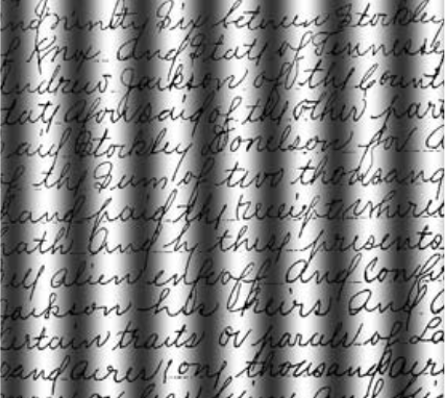 and ninety Six between Stockley
f Knox And State of Tennesse
Andrew Jackson of the Count
tate aforesaid of the other par
aid Stockley Donelson for a
f the Sum of two thousand
hand paid the receipt where
hath And by these presents
ell alien enfeoff And Confi
Jackson his heirs And a
Certain traits or parals of La
sand acres one thousand acr